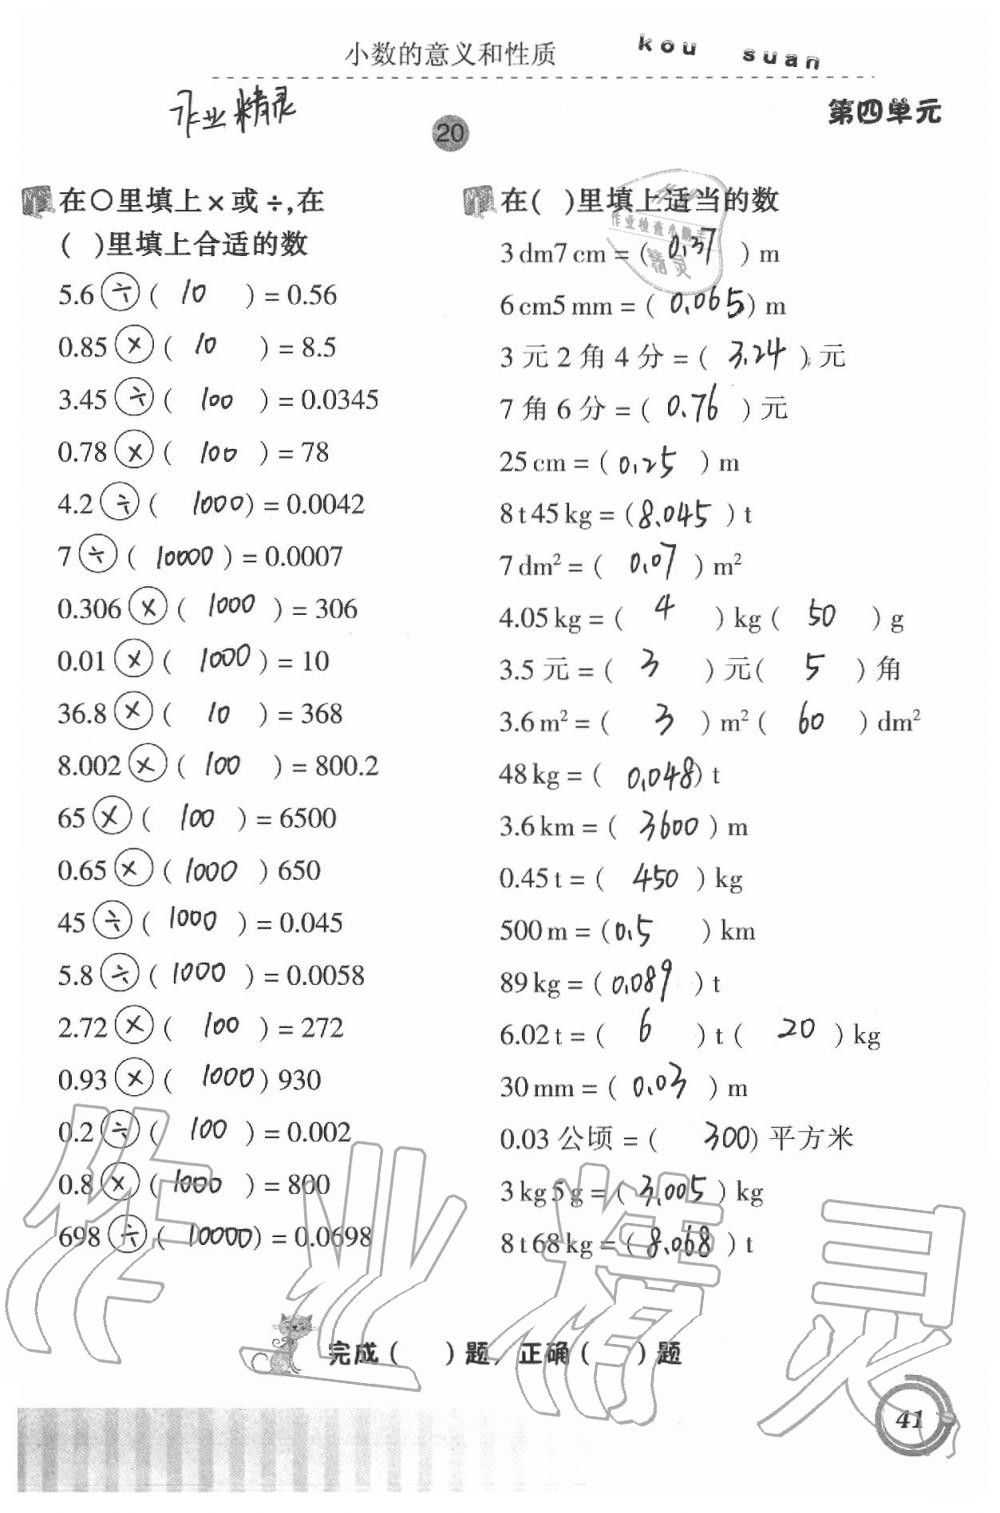 小数的意义和性质 kou suan
作业精灵
第四单元
20
在○里填上×或÷,在
( )里填上合适的数
5.6 ÷ ( 10 ) = 0.56
0.85 × ( 10 ) = 8.5
3.45 ÷ ( 100 ) = 0.0345
0.78 × ( 100 ) = 78
4.2 ÷ ( 1000 ) = 0.0042
7 ÷ ( 10000 ) = 0.0007
0.306 × ( 1000 ) = 306
0.01 × ( 1000 ) = 10
36.8 × ( 10 ) = 368
8.002 × ( 100 ) = 800.2
65 × ( 100 ) = 6500
0.65 × ( 1000 ) 650
45 ÷ ( 1000 ) = 0.045
5.8 ÷ ( 1000 ) = 0.0058
2.72 × ( 100 ) = 272
0.93 × ( 1000 ) 930
0.2 ÷ ( 100 ) = 0.002
0.8 × ( 1000 ) = 800
698 ÷ ( 10000 ) = 0.0698
在( )里填上适当的数
作业检查小助手
精灵
3 dm7 cm = ( 0.37 ) m
6 cm5 mm = ( 0.065 ) m
3 元 2 角 4 分 = ( 3.24 ) 元
7 角 6 分 = ( 0.76 ) 元
25 cm = ( 0.25 ) m
8 t 45 kg = ( 8.045 ) t
7 dm² = ( 0.07 ) m²
4.05 kg = ( 4 ) kg ( 50 ) g
3.5 元 = ( 3 ) 元( 5 ) 角
3.6 m² = ( 3 ) m² ( 60 ) dm²
48 kg = ( 0.048 ) t
3.6 km = ( 3600 ) m
0.45 t = ( 450 ) kg
500 m = ( 0.5 ) km
89 kg = ( 0.089 ) t
6.02 t = ( 6 ) t ( 20 ) kg
30 mm = ( 0.03 ) m
0.03 公顷 = ( 300 ) 平方米
3 kg 5 g = ( 3.005 ) kg
8 t 68 kg = ( 8.068 ) t
作业精灵
完成( )题,正确( )题
41